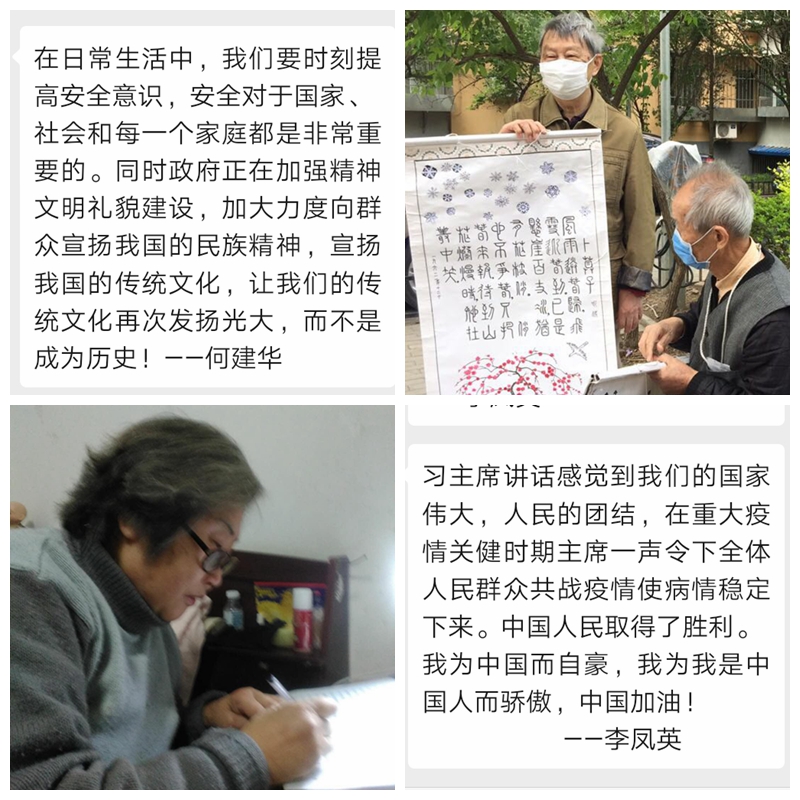 在日常生活中，我们要时刻提
高安全意识，安全对于国家、
社会和每一个家庭都是非常重
要的。同时政府正在加强精神
文明礼貌建设，加大力度向群
众宣扬我国的民族精神，宣扬
我国的传统文化，让我们的传
统文化再次发扬光大，而不是
成为历史！——何建华
卜算子
風雨送春歸飛
雪迎春到已是
懸崖百丈冰猶
有花枝俏俏
也不爭春只把
春來報待到山
習主席讲话感觉到我们的国家
伟大，人民的团结，在重大疫
情关健时期主席一声令下全体
人民群众共战疫情使病情稳定
下来。中国人民取得了胜利。
我为中国而自豪，我为我是中
国人而骄傲，中国加油！
——李凤英